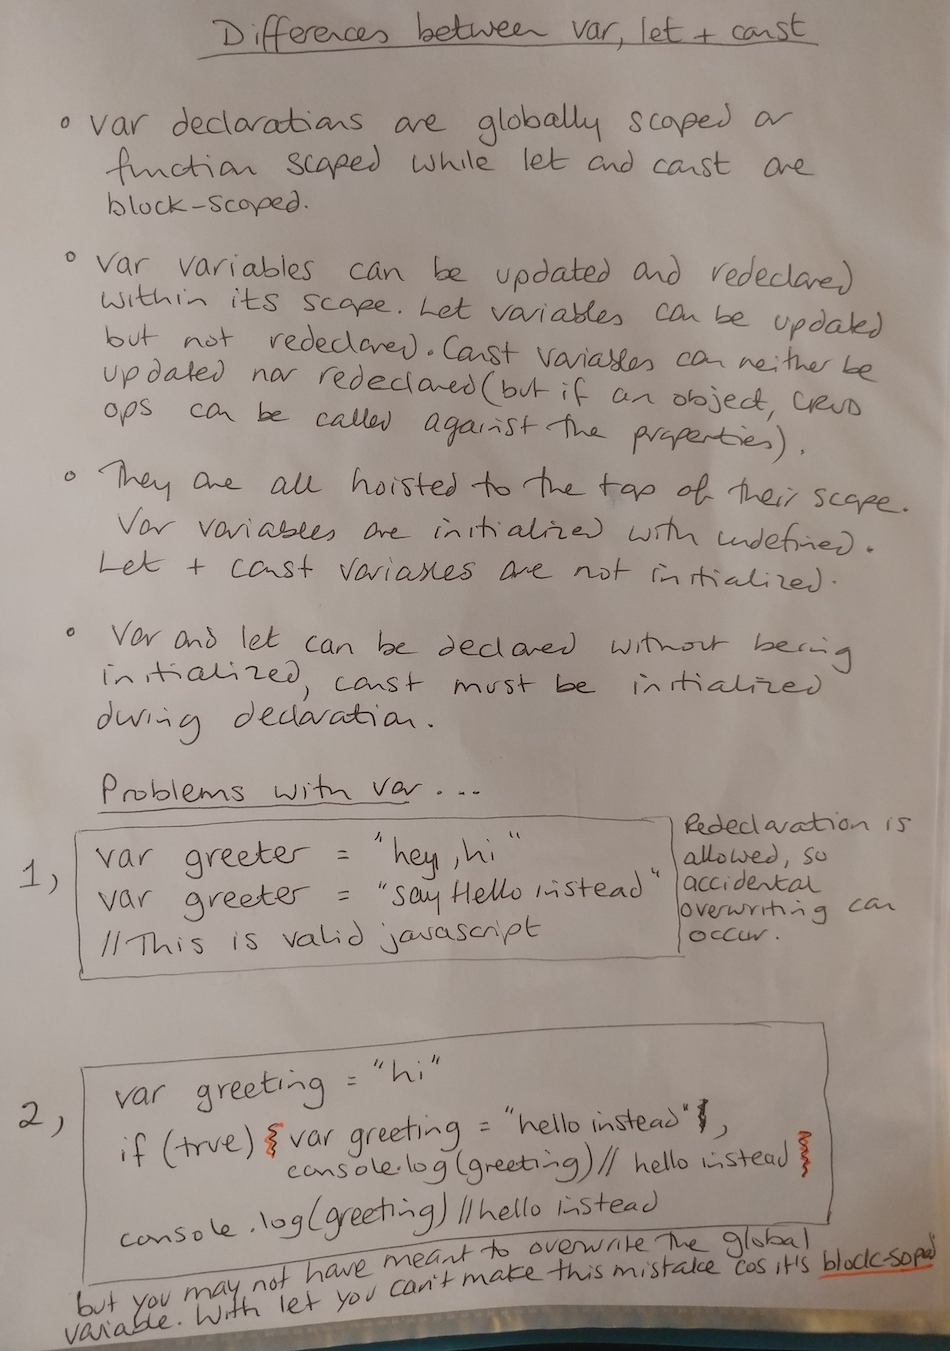 Differences between var, let + const
° var declarations are globally scoped or
function scoped while let and const are
block-scoped.
° var variables can be updated and redeclared
within its scope. Let variables can be updated
but not redeclared. Const variables can neither be
updated nor redeclared (but if an object, CRUD
ops can be called against the properties).
° They are all hoisted to the top of their scope.
Var variables are initialized with undefined.
Let + const variables are not initialized.
° Var and let can be declared without being
initialized, const must be initialized
during declaration.
Problems with var...
1, var greeter = "hey, hi"
var greeter = "say Hello instead"
// This is valid javascript
Redeclaration is
allowed, so
accidental
overwriting can
occur.
2, var greeting = "hi"
if (true) { var greeting = "hello instead" ,
console.log(greeting) // hello instead }
console.log(greeting) // hello instead
but you may not have meant to overwrite the global
variable. With let you can't make this mistake cos it's block-soped